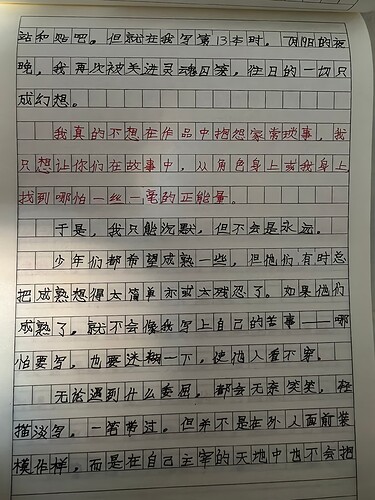 站和贴吧。但就在我写第13本时,何日的夜
晚,我再次被关进灵魂囚笼,往日的一切只
成幻想。
我真的不想在作品中抱怨家常琐事,我
只想让你们在故事中,从角色身上或我身上
找到哪怕一丝一毫的正能量。
于是,我只能沉默,但不会是永远。
少年们都希望成熟一些,但他们有时总
把成熟想得太简单亦或太残忍了。如果他们
成熟了,就不会像我写上自己的苦事——哪
怕要写,也要迷糊一下,使他人看不穿。
无论遇到什么委屈,都会无奈笑笑,轻
描淡写,一笔带过。但并不是在外人面前装
模作样,而是在自己主宰的天地中也不会抱